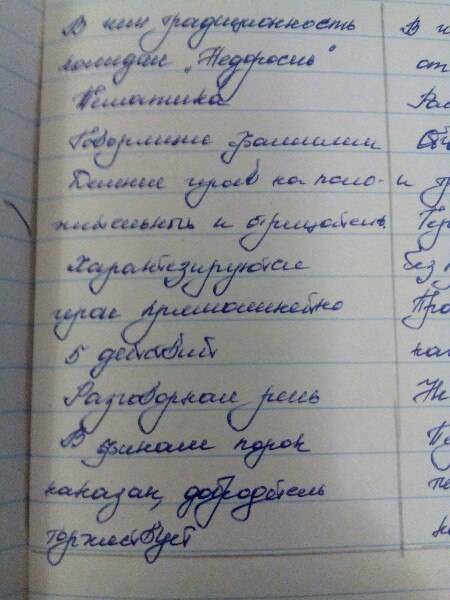 В чём традиционность В
комедии „Недоросль" от
Тематика
Говорящие фамилии
Деление героев на поло- и
жительных и отрицательн.
Характезируются без
герои прямолинейно
5 действий
Разговорная речь
В финале порок
наказан, добродетель
торжествует